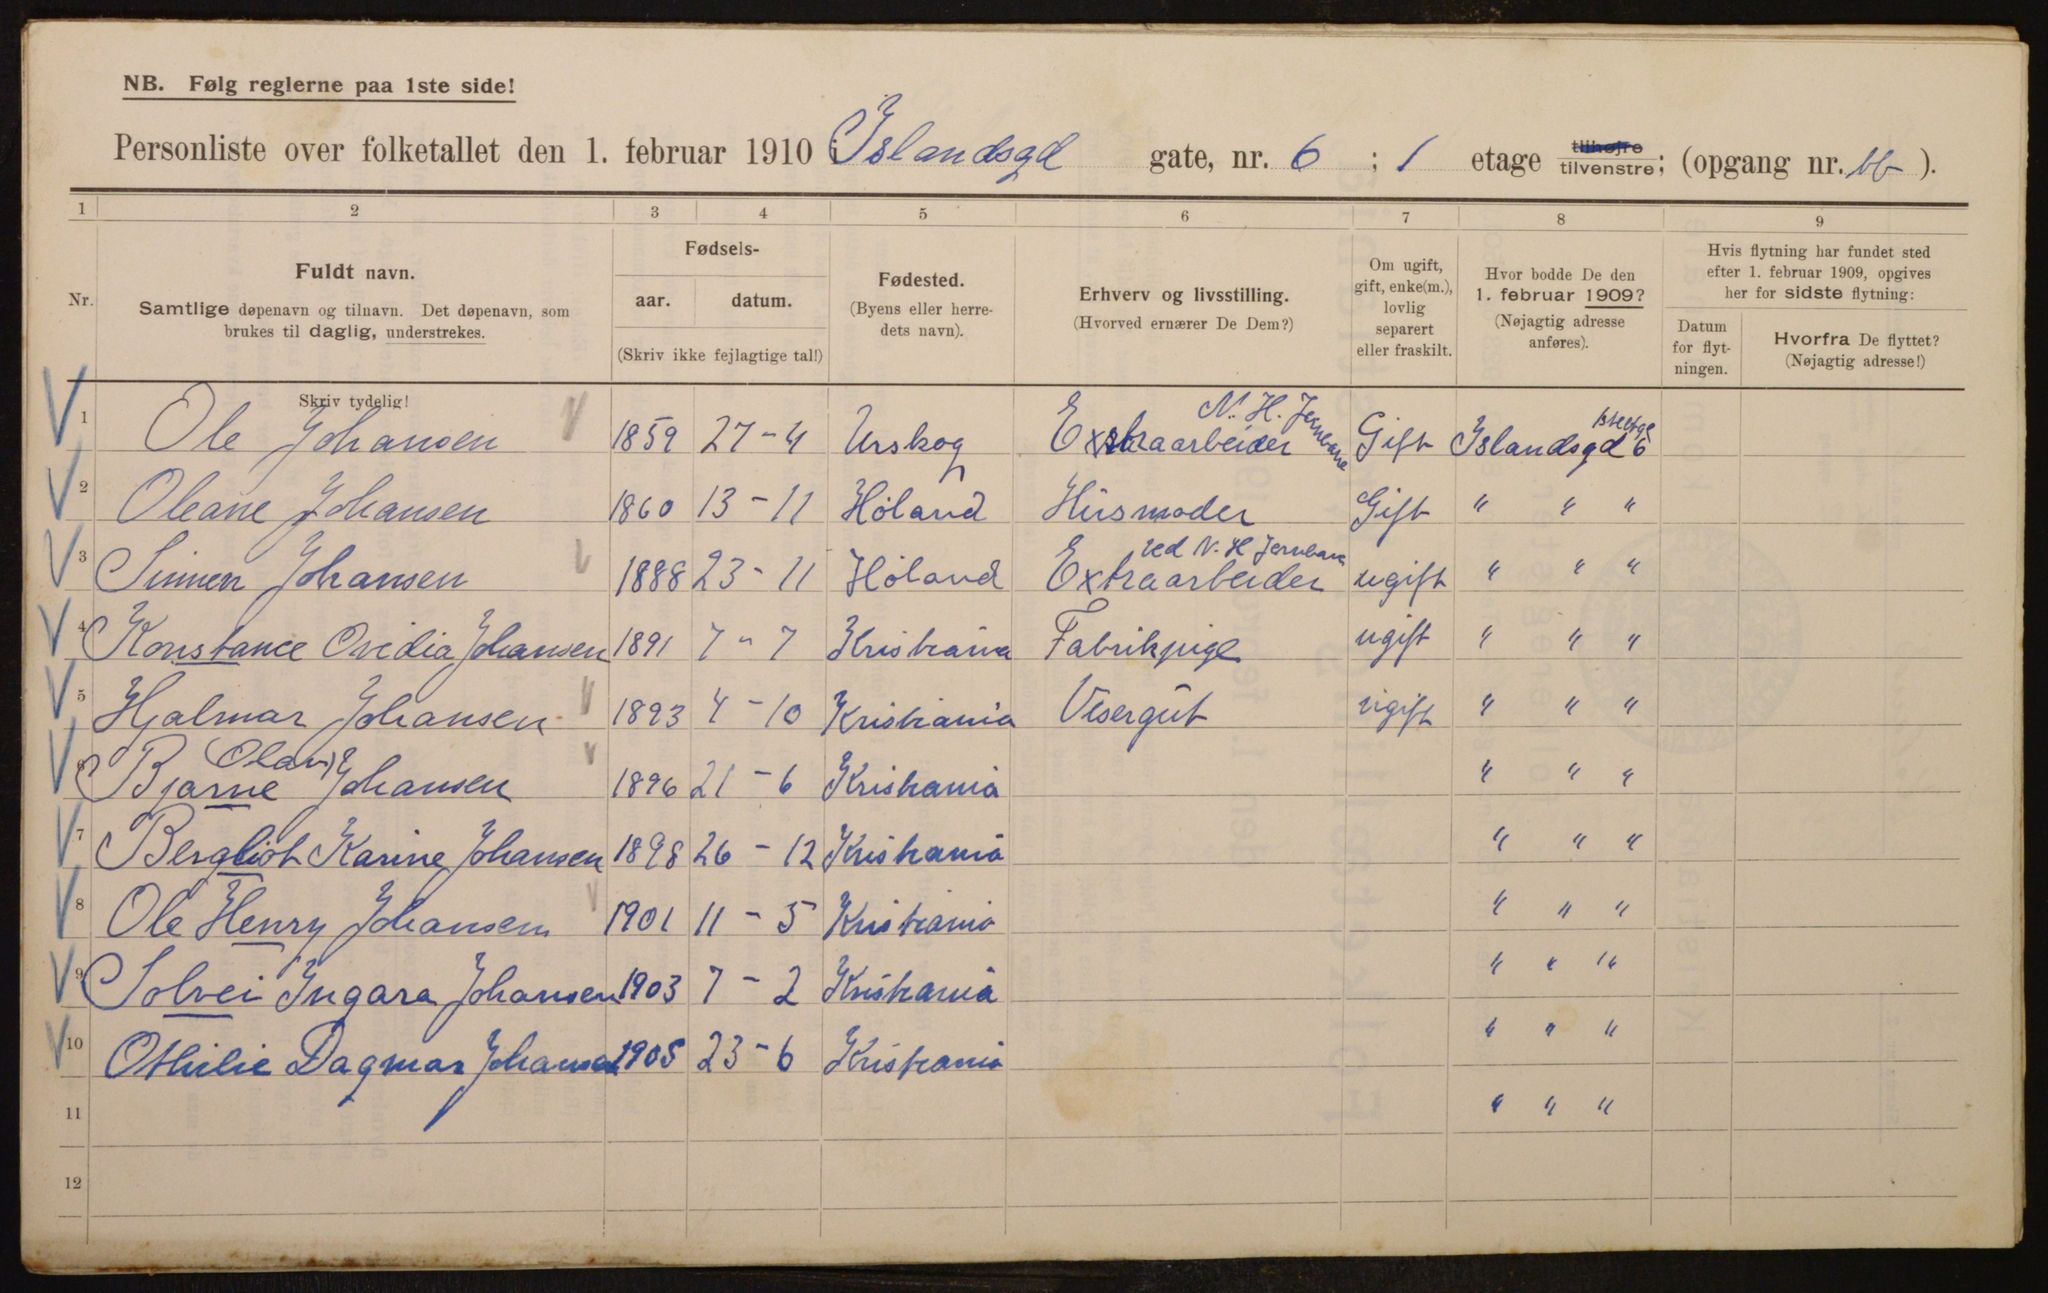 NB. Følg reglerne paa 1ste side!
Personliste over folketallet den 1. februar 1910 i Islandsgd gate, nr. 6 ; 1 etage tilhøjre tilvenstre; (opgang nr. bb ).
1 2 3 4 5 6 7 8 9
Nr.
Fuldt navn.
Samtlige døpenavn og tilnavn. Det døpenavn, som
brukes til daglig, understrekes.
Skriv tydelig!
Fødsels-
aar. datum.
(Skriv ikke fejlagtige tal!)
Fødested.
(Byens eller herre-
dets navn).
Erhverv og livsstilling.
(Hvorved ernærer De Dem?)
Om ugift,
gift, enke(m.),
lovlig
separert
eller fraskilt.
Hvor bodde De den
1. februar 1909?
(Nøjagtig adresse
anføres).
Hvis flytning har fundet sted
efter 1. februar 1909, opgives
her for sidste flytning:
Datum
for flyt-
ningen.
Hvorfra De flyttet?
(Nøjagtig adresse!)
1 Ole Johansen 1859 27-4 Urskog Extraarbeider N. H. Jernbane Gift Islandsgd 6
2 Oleane Johansen 1860 13-11 Høland Husmoder Gift " " "
3 Simen Johansen 1888 23-11 Høland Extraarbeider ved N. H Jernbane ugift " " "
4 Konstance Ovidia Johansen 1891 7-7 Kristiania Fabrikpige ugift " " "
5 Hjalmar Johansen 1893 4-10 Kristiania Visergut ugift " " "
6 Bjarne (Olav) Johansen 1896 21-6 Kristiania " " "
7 Bergliot Karine Johansen 1898 26-12 Kristiania " " "
8 Ole Henry Johansen 1901 11-5 Kristiania " " "
9 Solvei Ingara Johansen 1903 7-2 Kristiania " " "
10 Othilie Dagmar Johansen 1905 23-6 Kristiania " " "
11 " " "
12